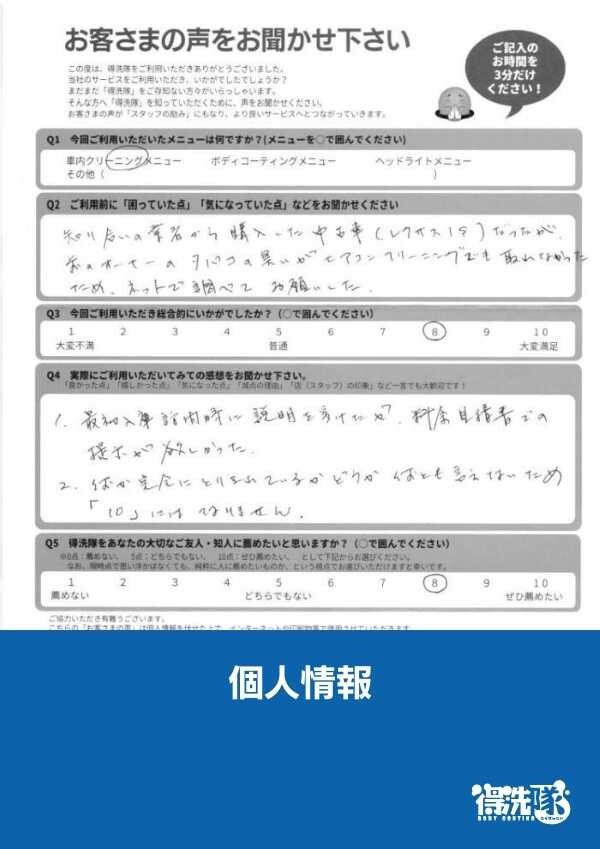 お客さまの声をお聞かせ下さい
ご記入の
お時間を
3分だけ
ください！
この度は、得洗隊をご利用いただきありがとうございました。
当社のサービスをご利用いただき、いかがでしたでしょうか？
まだまだ「得洗隊」をご存知ない方々がいらっしゃいます。
そんな方へ「得洗隊」を知っていただくために、声をお聞かせください。
お客さまの声が「スタッフの励み」にもなり、より良いサービスへとつながっていきます。
Q1 今回ご利用いただいたメニューは何ですか？(メニューを○で囲んでください)
車内クリーニングメニュー ボディコーティングメニュー ヘッドライトメニュー
その他（ ）
Q2 ご利用前に「困っていた点」「気になっていた点」などをお聞かせください
知り合いの業者から購入した中古車（レクサスIS）だったが、
前のオーナーのタバコの臭いがエアコンクリーニングでも取れなかった
ため、ネットで調べてお願いした。
Q3 今回ご利用いただき総合的にいかがでしたか？（○で囲んでください）
1 2 3 4 5 6 7 8 9 10
大変不満 普通 大変満足
Q4 実際にご利用いただいてみての感想をお聞かせ下さい。
「良かった点」「嬉しかった点」「気になった点」「減点の理由」「店（スタッフ）の印象」など一言でも大歓迎です！
1. 最初入庫訪問時に説明を受けたが、料金見積書での
提示が欲しかった。
2. 臭が完全にとりきれているかどうか何とも言えないため
「10」にはなりません。
Q5 得洗隊をあなたの大切なご友人・知人に薦めたいと思いますか？（○で囲んでください）
※0点：薦めない、 5点：どちらでもない、 10点：ぜひ薦めたい、 として下記からお選びください。
なお、現時点で思い浮かばなくても、純粋に人に薦めたいものか、という視点でお選びいただけますと幸いです。
1 2 3 4 5 6 7 8 9 10
薦めない どちらでもない ぜひ薦めたい
ご協力いただき有難うございます。
こちらの「お客さまの声」は個人情報を伏せた上で、インターネットや印刷物等で使用させていただきます。
個人情報
得洗隊
BODY COATING